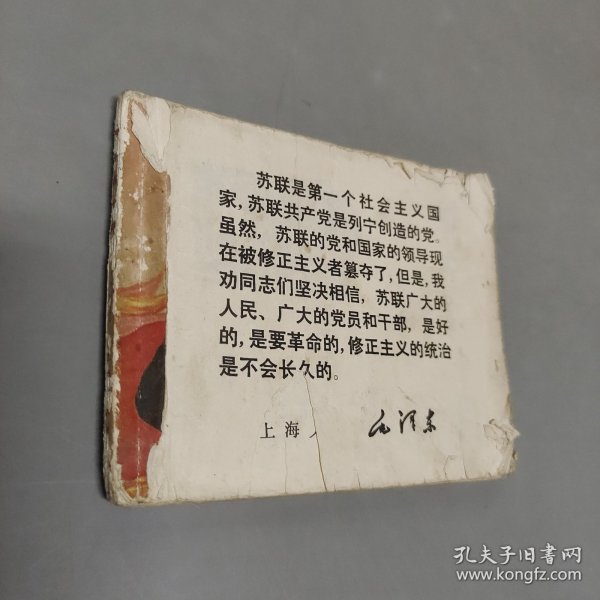 苏联是第一个社会主义国
家，苏联共产党是列宁创造的党。
虽然，苏联的党和国家的领导现
在被修正主义者篡夺了，但是，我
劝同志们坚决相信，苏联广大的
人民、广大的党员和干部，是好
的，是要革命的，修正主义的统治
是不会长久的。
上海人 毛泽东
孔夫子旧书网
www.kongfz.com